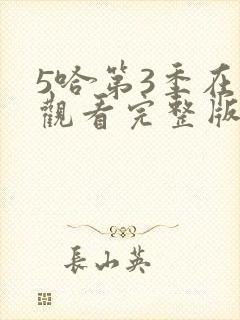 5哈第3季在
觀看完整版
長山英